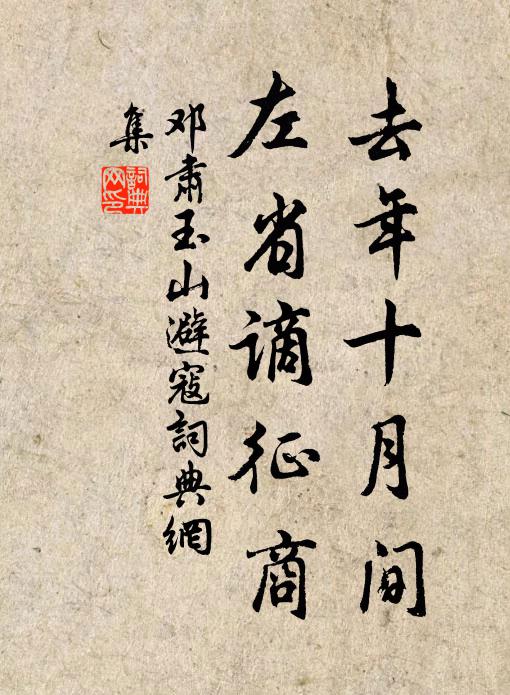 去年十月间
左省谪征商
邓肃玉山避寇詞典網
集
詞典网印